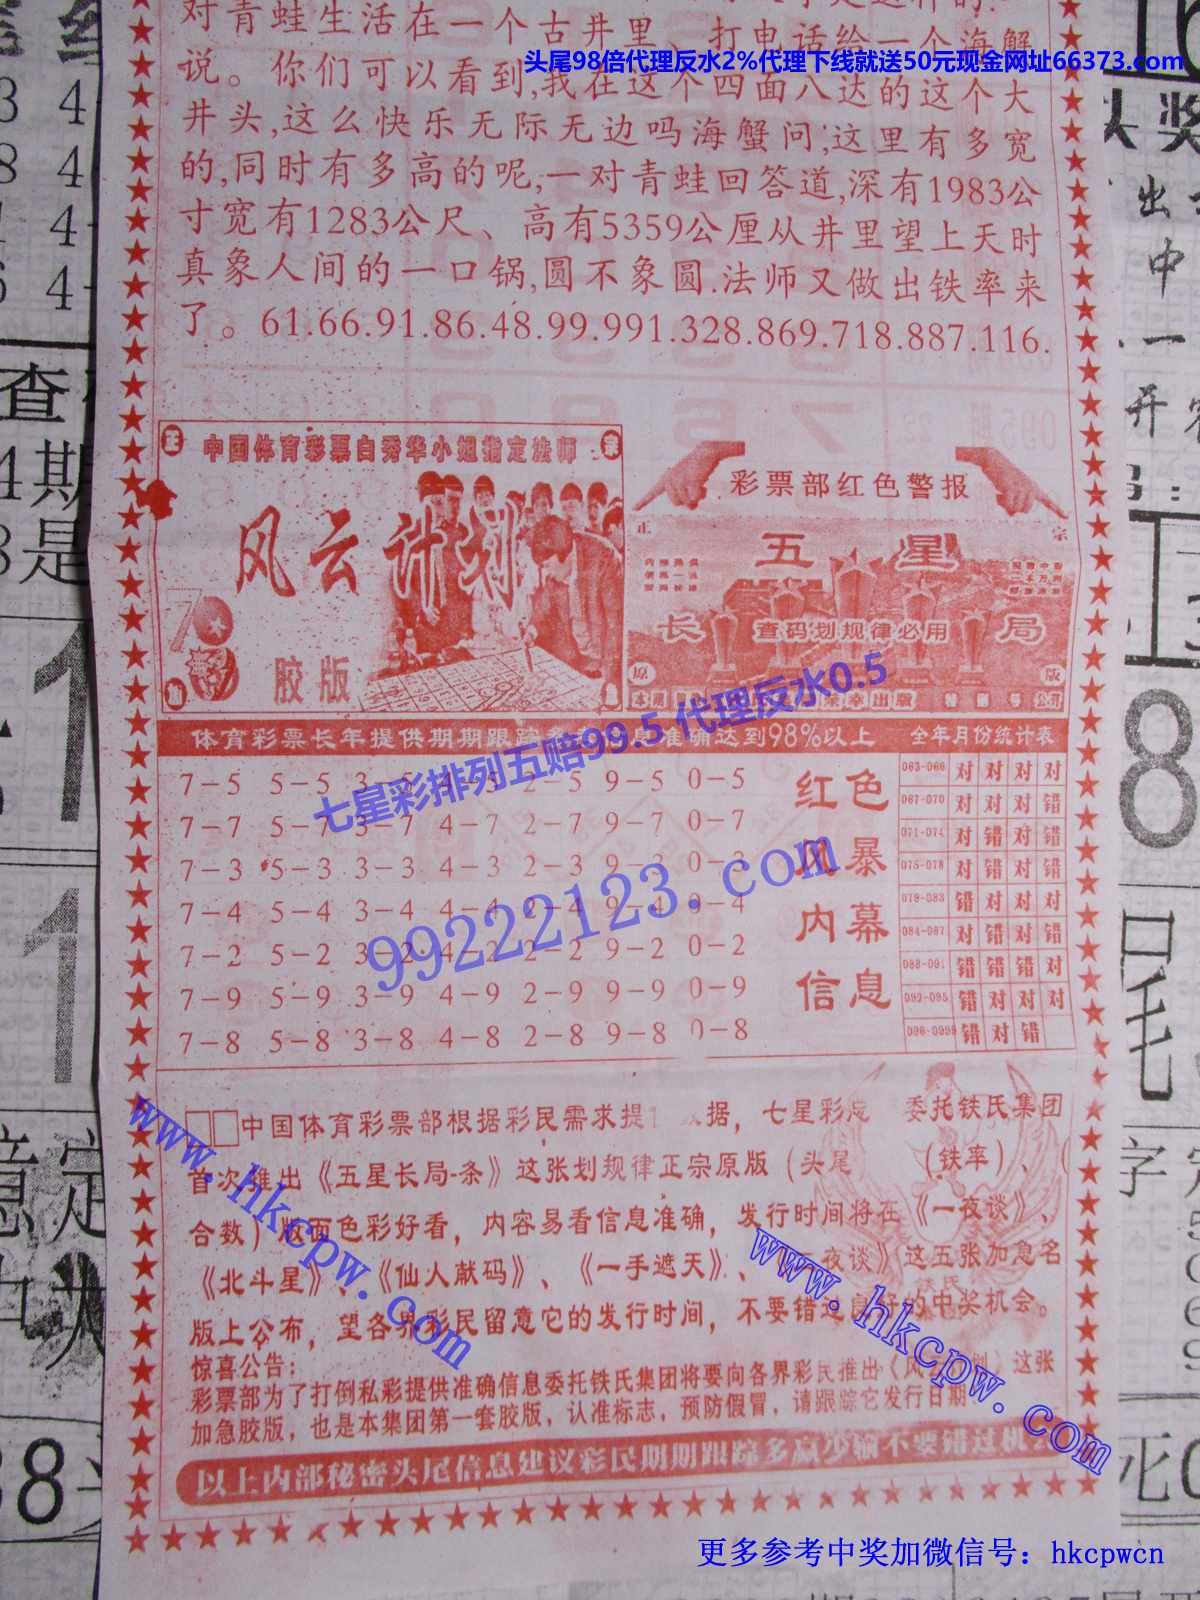 头尾98倍代理反水2%代理下线就送50元现金网址66373.com
对青蛙生活在一个古井里、打电话给一个海蟹
说。你们可以看到,我在这个四面八达的这个大
井头,这么快乐无际无边吗海蟹问;这里有多宽
的,同时有多高的呢,一对青蛙回答道,深有1983公
寸宽有1283公尺、高有5359公厘从井里望上天时
真象人间的一口锅,圆不象圆.法师又做出铁率来
了。61.66.91.86.48.99.991.328.869.718.887.116.
正 中国体育彩票白秀华小姐指定法师 宗
风云计划
胶版
彩票部红色警报
正 宗
五星
长 查码划规律必用 局
原 版
体育彩票长年提供期期跟踪 息准确达到98%以上 全年月份统计表
七星彩排列五赔99.5 代理反水0.5
7-5 5-5 3-5 4-5 2-5 9-5 0-5
7-7 5-7 3-7 4-7 2-7 9-7 0-7
7-3 5-3 3-3 4-3 2-3 9-3 0-3
7-4 5-4 3-4 4-4 2-4 9-4 0-4
7-2 5-2 3-2 4-2 2-2 9-2 0-2
7-9 5-9 3-9 4-9 2-9 9-9 0-9
7-8 5-8 3-8 4-8 2-8 9-8 0-8
99222123.com
红色
风暴
内幕
信息
063-066 对 对 对 对
067-070 对 对 对 错
071-074 对 错 对 错
075-078 对 错 错 错
079-083 错 对 对 对
084-087 对 错 对 错
088-091 错 错 错 对
092-095 错 对 对 对
096-099 错 对 错
□□中国体育彩票部根据彩民需求提 据，七星彩 委托铁氏集团
首次推出《五星长局-条》这张划规律正宗原版（头尾 （铁率）、（
合数）版面色彩好看，内容易看信息准确，发行时间将在《一夜谈》、
《北斗星》、《仙人献码》、《一手遮天》、 夜谈》这五张加急名
版上公布，望各界彩民留意它的发行时间，不要错过良好的中奖机会。
惊喜公告：
彩票部为了打倒私彩提供准确信息委托铁氏集团将要向各界彩民推出《风云计划》这张
加急胶版，也是本集团第一套胶版，认准标志，预防假冒，请跟踪它发行日期
以上内部秘密头尾信息建议彩民期期跟踪多赢少输不要错过机
www.hkcpw.com
www.hkcpw.com
更多参考中奖加微信号：hkcpwcn